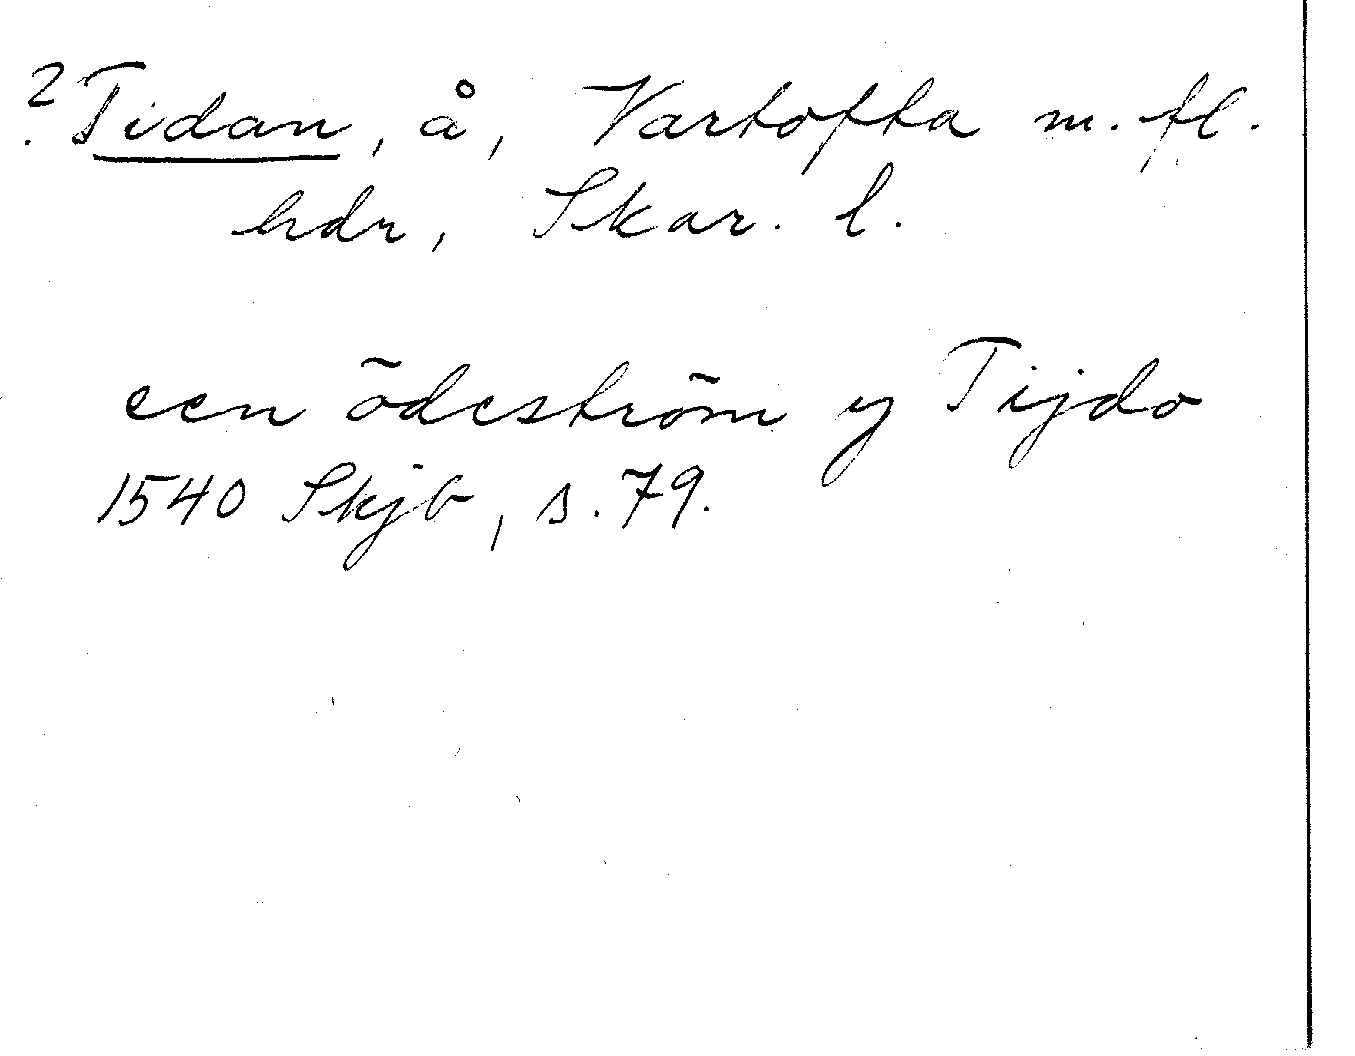 ? Tidan, å, Vartofta m. fl.
hdr, Skar. l.
een ödeström y Tijdo
1540 Skjb, s. 79.